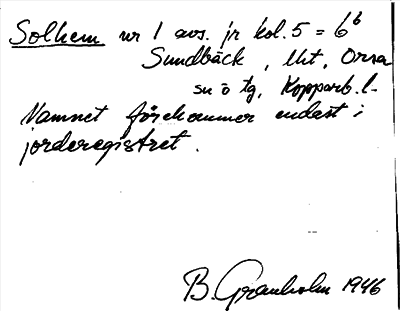 Solhem nr 1 avs. jr kol. 5 = 6b
Sundbäck, Unt, Orsa
sn o tg, Kopparb. l.
Namnet förekommer endast i
jorderegistret.
B. Granholm 1946